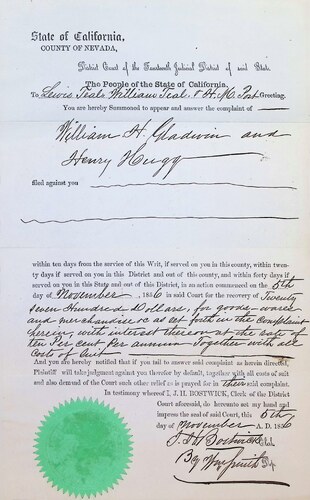 State of California,
COUNTY OF NEVADA,
District Court of the Fourteenth Judicial District of said State.
The People of the State of California,
To Lewis Teal William Teal & H. M. Post Greeting.
You are hereby Summoned to appear and answer the complaint of
William H. Gladwin and
Henry Hugg
filed against you
within ten days from the service of this Writ, if served on you in this county, within twen-
ty days if served on you in this District and out of this county, and within forty days if
served on you in this State and out of this District, in an action commenced on the 5th
day of November, 1856 in said Court for the recovery of Twenty
seven Hundred Dollars, for goods wares
and merchandise &c as set forth in the Complaint
herein, with interest thereon at the rate of
ten Per Cent per annum Together with all
Costs of Suit
And you are hereby notified that if you fail to answer said complaint as herein directed,
Plaintiff will take judgment against you therefor by default, together with all costs of suit
and also demand of the Court such other relief as is prayed for in their said complaint.
In testimony whereof I, J. H. BOSTWICK, Clerk of the District
Court aforesaid, do hereunto set my hand and
impress the seal of said Court, this 5th
day of November A. D. 1856
J. H. Bostwick Clerk,
By Wm Smith Dp.